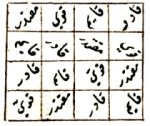 قادر قايم قوي مقتدر
قوي مقتدر قادر قايم
مقتدر قوي قايم قادر
قايم قادر مقتدر قوي